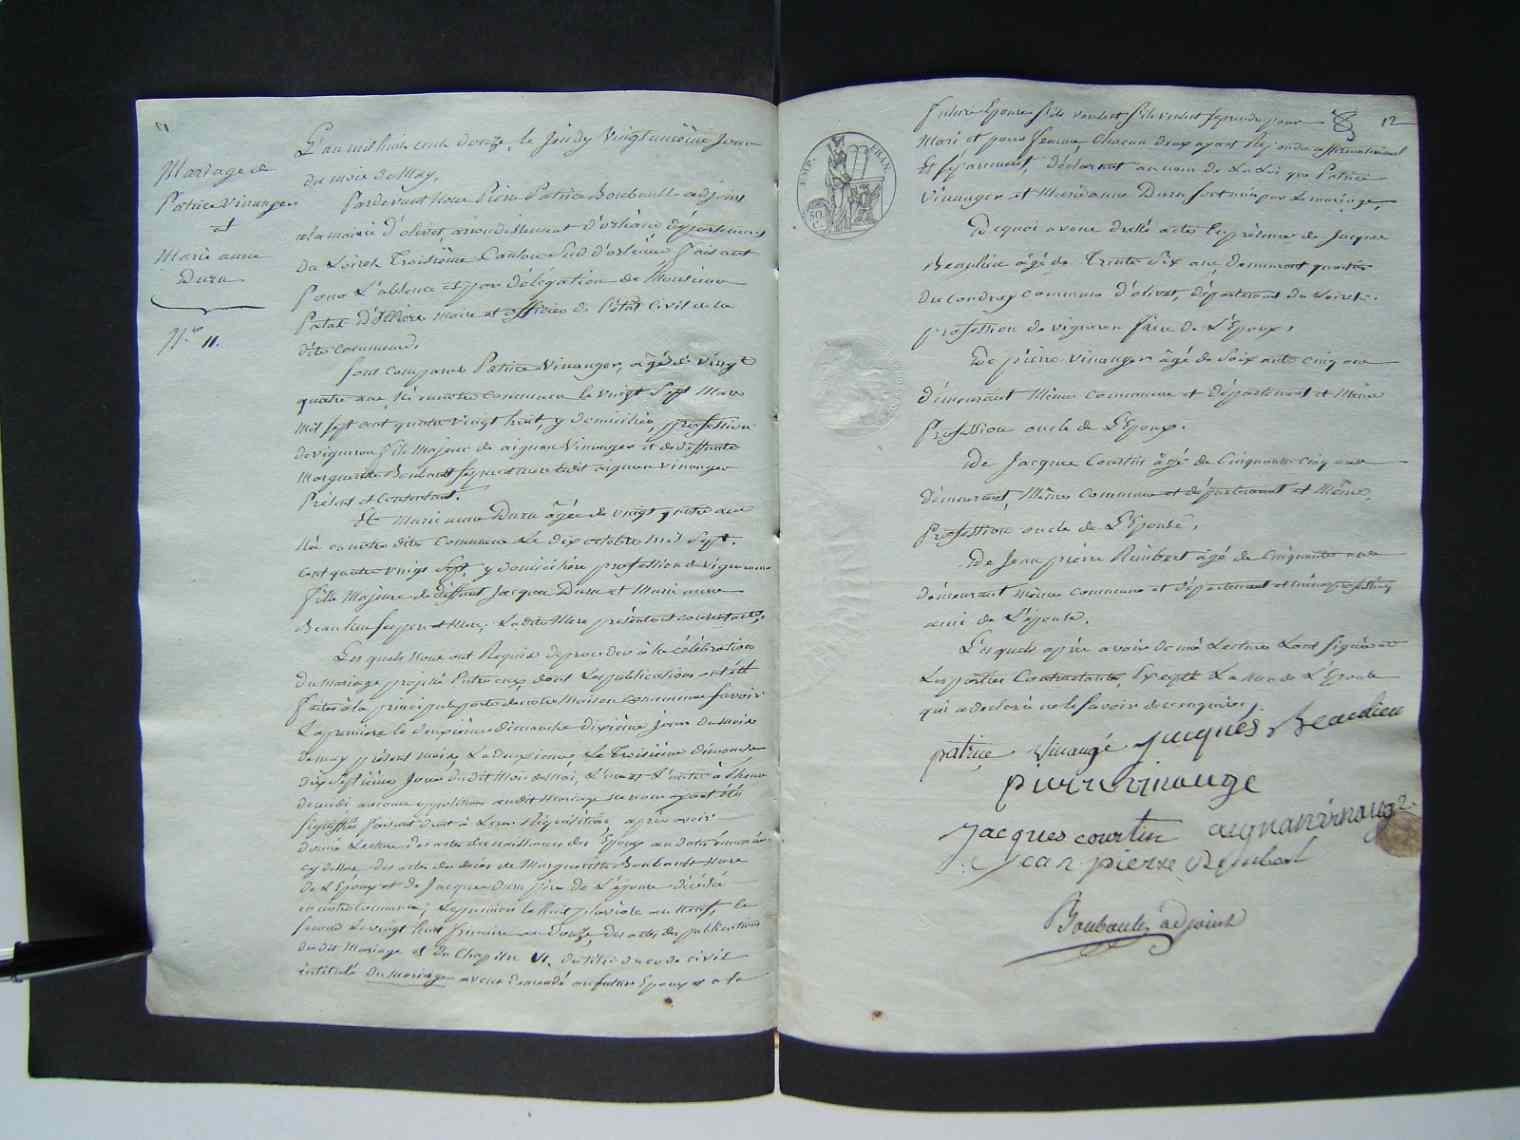 Mariage de
Patrice Vinanger
et
Marie anne
Dura
N.ro 11.
L'an mil huit cent douze, le Jeudy Vingt unième Jour
du mois de May,
Pardevant Nous Pierre Patrice Boubault adjoint
a la mairie d'olivet, arrondissement d'orléans département
du Loiret Troisième Canton Sud d'orléans, faisant
pour L'absence et par délégation de Monsieur
maire et officier de l'état Civil de la
dite commune,
sont comparus Patrice Vinanger, âgé de vingt
quatre ans, Né en notre commune le vingt Sept Mars
mil sept cent quatre vingt huit, y domicilié, profession
de vigneron fils Majeur de aignan Vinanger et de deffunte
Marguerite Boubault ses père et mere ledit aignan Vinanger
Présent et Consentant.
Et Marie anne Dura âgée de vingt quatre ans
Née en notre dite Commune Le dix octobre mil Sept
cent quatre vingt Sept, y domiciliée profession de vigneronne
fille Majeure de deffunt Jacques Dura et Marie anne
Beaulieu ses père et Mere, Ladite Mere présente et consentante,
Les quels Nous ont Requis de proceder à la célébration
du Mariage projetté Entre eux, dont Les publications ont été
faites à la principale porte de notre Maison commune Savoir
La premiere le deuxième dimanche dixième Jour du mois
de may présent mois, La deuxieme Le Troisième dimanche
dix Septième Jour dudit Mois de Mai, L'une et L'autre à l'heure
de midi aucune opposition audit Mariage ne nous ayant été
signiffiée faisant droit à Leur Réquisition, après avoir
donné Lecture des actes de naissances des Epoux
des actes de décès de Marguerite Boubault Mere
de L'Epoux et de Jacques Dura père de L'épouse décédés
en notre Commune, Le premier le huit pluviose an Neuf, le
second Le vingt huit frimaire an Douze, des actes de publications
dudit Mariage et du Chapitre VI. du titre du code civil
intitulé du Mariage avons demandé au futur Epoux et a la
12
future Epouse s'ils veulent se prendre pour
Mari et pour femme, Chacun d'eux ayant Répondu affirmativement
et séparement, déclarons au nom de La Loi que Patrice
Vinanger et Marie anne Dura, sont unis par Le mariage,
De quoi avons dressé acte En présence de Jacques
Beaulieu âgé de Trente Six ans, demeurant quartier
du Coudray commune d'olivet, département du Loiret.
profession de vigneron frère de L'Epoux,
De pierre Vinanger âgé de Soixante cinq ans
démeurant Même commune et département et Même
Profession oncle de L'Epoux.
De Jacques Courtin âgé de Cinquante cinq ans
Démeurant, Même Commune et département et Même
Profession oncle de L'Epouse.
De Jean pierre Rimbert âgé de Cinquante ans
démeurant même commune et département et même profession,
ami de L'épouse.
Les quels après avoir donné Lecture L'ont signé avec
Les parties Contractantes, Excepté La Mere de L'Epouse
qui a declaré ne le Savoir de ce enquise./.
patrice Vinaugé Jacques Beaulieu
pierre vinauge
Jacques courtin aignan vinauge
Jean pierre Rimbert
Boubault adjoint
EMP. FRAN.
50
C.